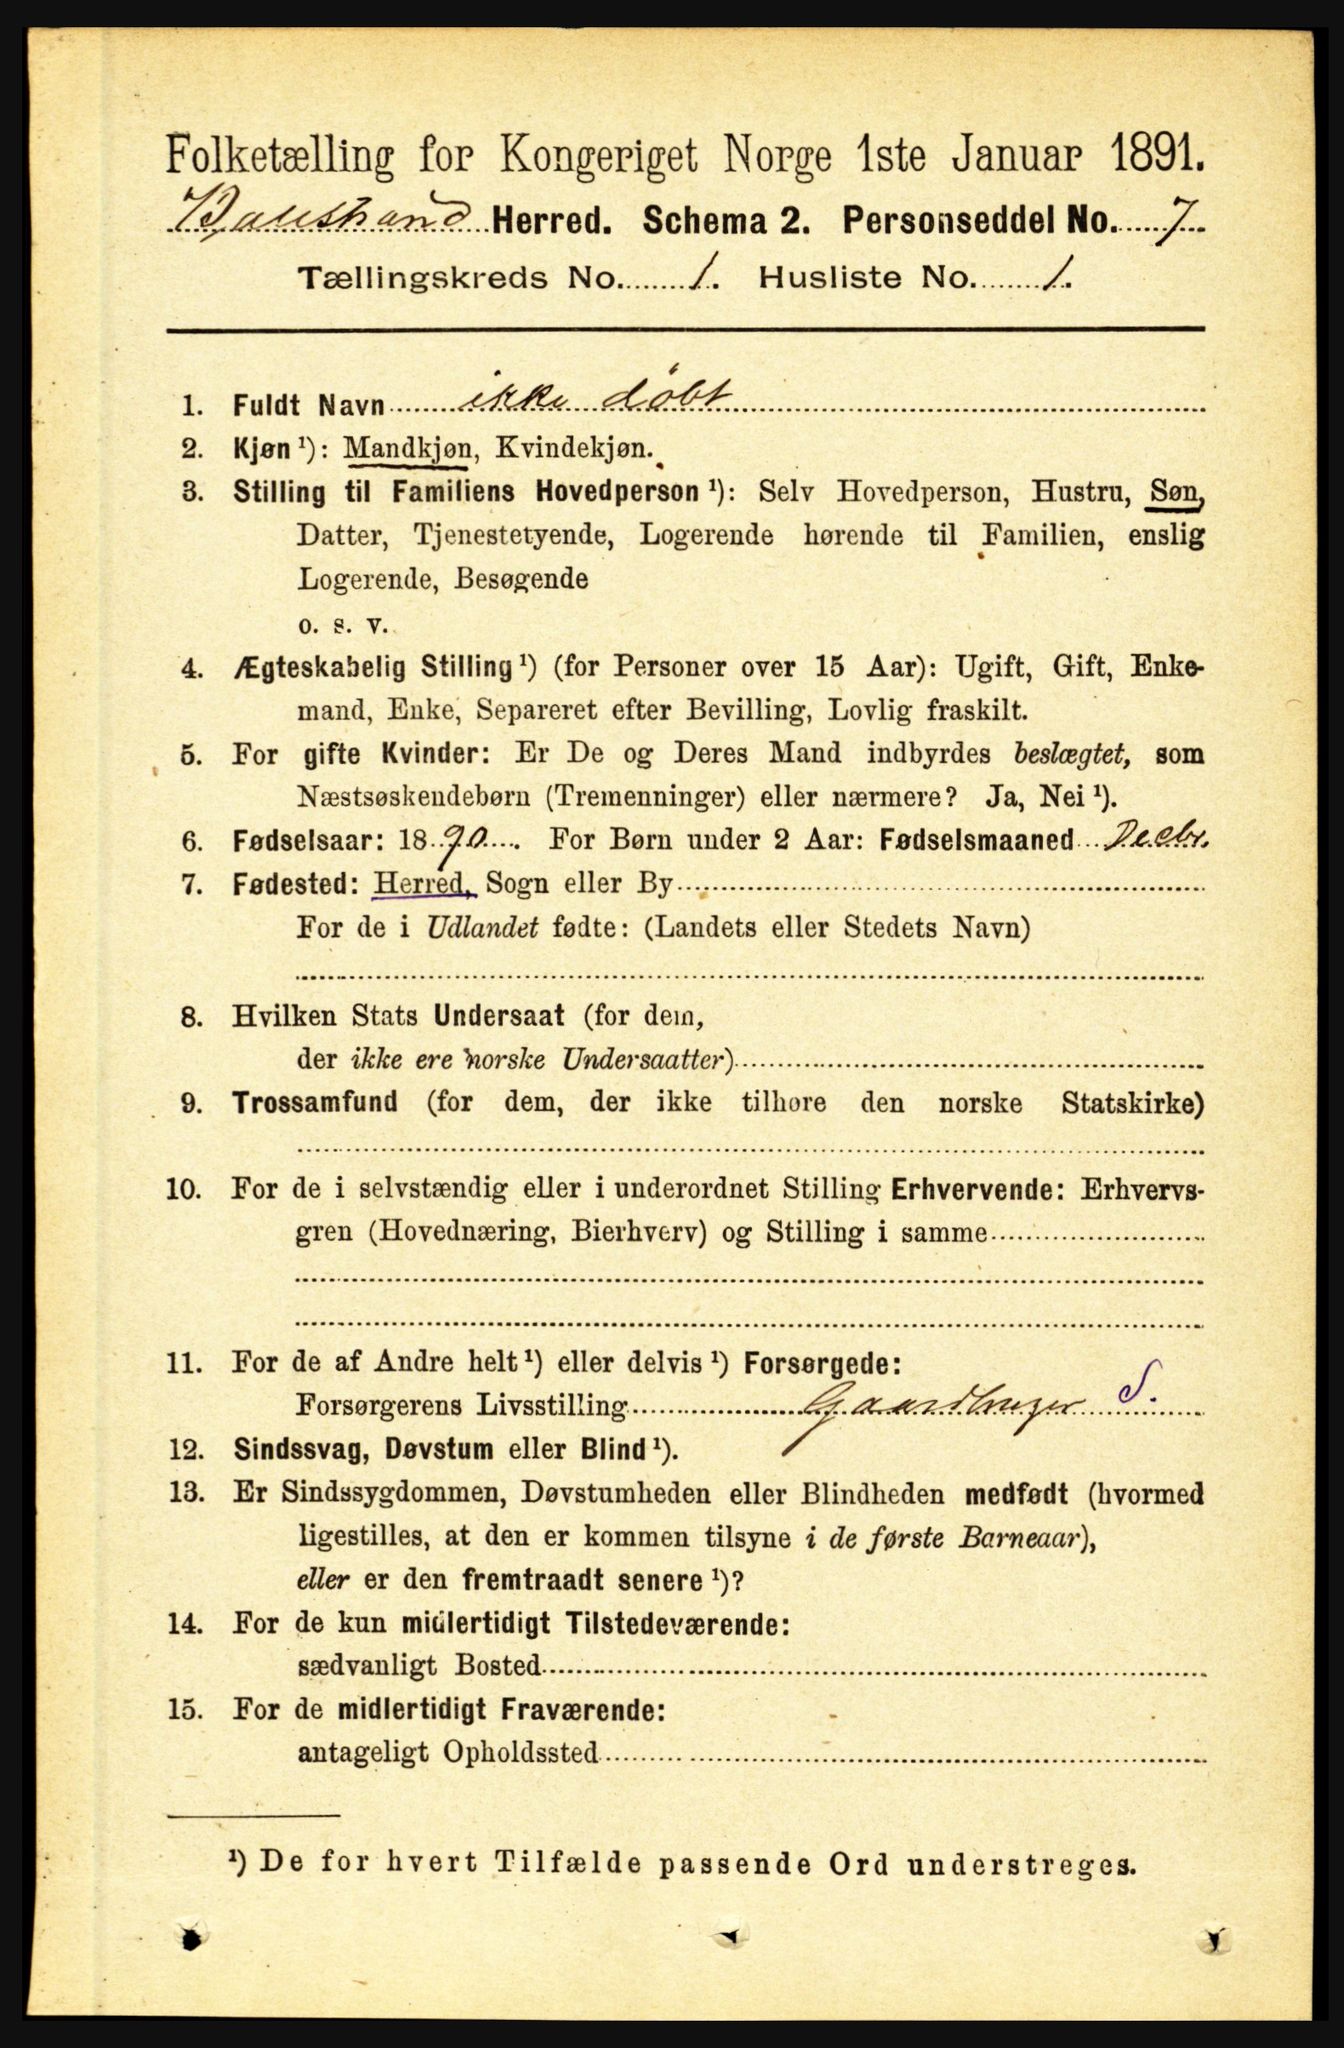 Folketælling for Kongeriget Norge 1ste Januar 1891.
Balestrand Herred. Schema 2. Personseddel No. 7
Tællingskreds No. 1. Husliste No. 1.
1. Fuldt Navn ikke døbt
2. Kjøn ¹): Mandkjøn, Kvindekjøn.
3. Stilling til Familiens Hovedperson ¹): Selv Hovedperson, Hustru, Søn,
Datter, Tjenestetyende, Logerende hørende til Familien, enslig
Logerende, Besøgende
o. s. v.
4. Ægteskabelig Stilling ¹) (for Personer over 15 Aar): Ugift, Gift, Enke-
mand, Enke, Separeret efter Bevilling, Lovlig fraskilt.
5. For gifte Kvinder: Er De og Deres Mand indbyrdes beslægtet, som
Næstsøskendebørn (Tremenninger) eller nærmere? Ja, Nei ¹).
6. Fødselsaar: 1890. For Børn under 2 Aar: Fødselsmaaned Decbr.
7. Fødested: Herred, Sogn eller By
For de i Udlandet fødte: (Landets eller Stedets Navn)
8. Hvilken Stats Undersaat (for dem,
der ikke ere norske Undersaatter)
9. Trossamfund (for dem, der ikke tilhøre den norske Statskirke)
10. For de i selvstændig eller i underordnet Stilling Erhvervende: Erhvervs-
gren (Hovednæring, Bierhverv) og Stilling i samme
11. For de af Andre helt ¹) eller delvis ¹) Forsørgede:
Forsørgerens Livsstilling Gaardbruger S.
12. Sindssvag, Døvstum eller Blind ¹).
13. Er Sindssygdommen, Døvstumheden eller Blindheden medfødt (hvormed
ligestilles, at den er kommen tilsyne i de første Barneaar),
eller er den fremtraadt senere ¹)?
14. For de kun midlertidigt Tilstedeværende:
sædvanligt Bosted
15. For de midlertidigt Fraværende:
antageligt Opholdssted
¹) De for hvert Tilfælde passende Ord understreges.